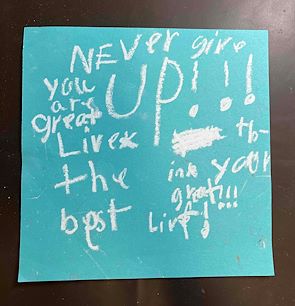 NEVER give
UP!!!
you
are
great
Live
the
best
Life!
th-
ink your
great!!!